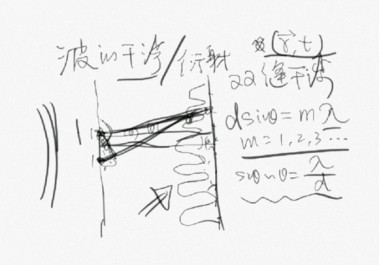 波的干涉/衍射
(r⃗,t)
双缝干涉
dsinθ=mλ
m=1,2,3...
sinθ=λ/d